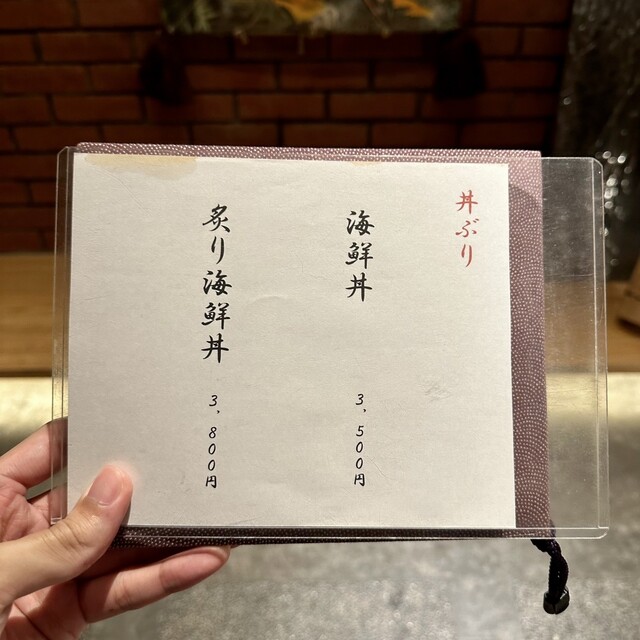 丼ぶり
海鮮丼 3,500円
炙り海鮮丼 3,800円